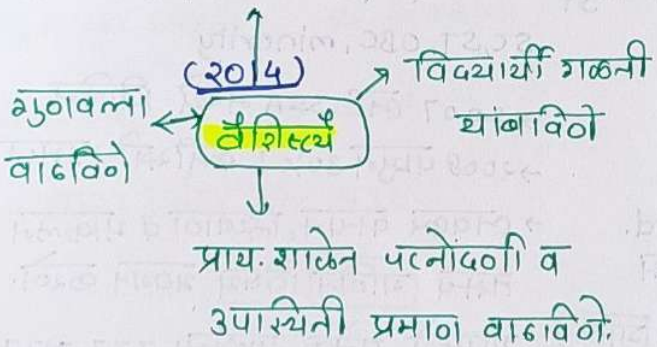 (२०१४)
वैशिष्ट्ये
गुणवत्ता
वाढविणे
विद्यार्थी गळती
थांबविणे
प्राथ. शाळेत पटनोंदणी व
उपस्थिती प्रमाण वाढविणे.